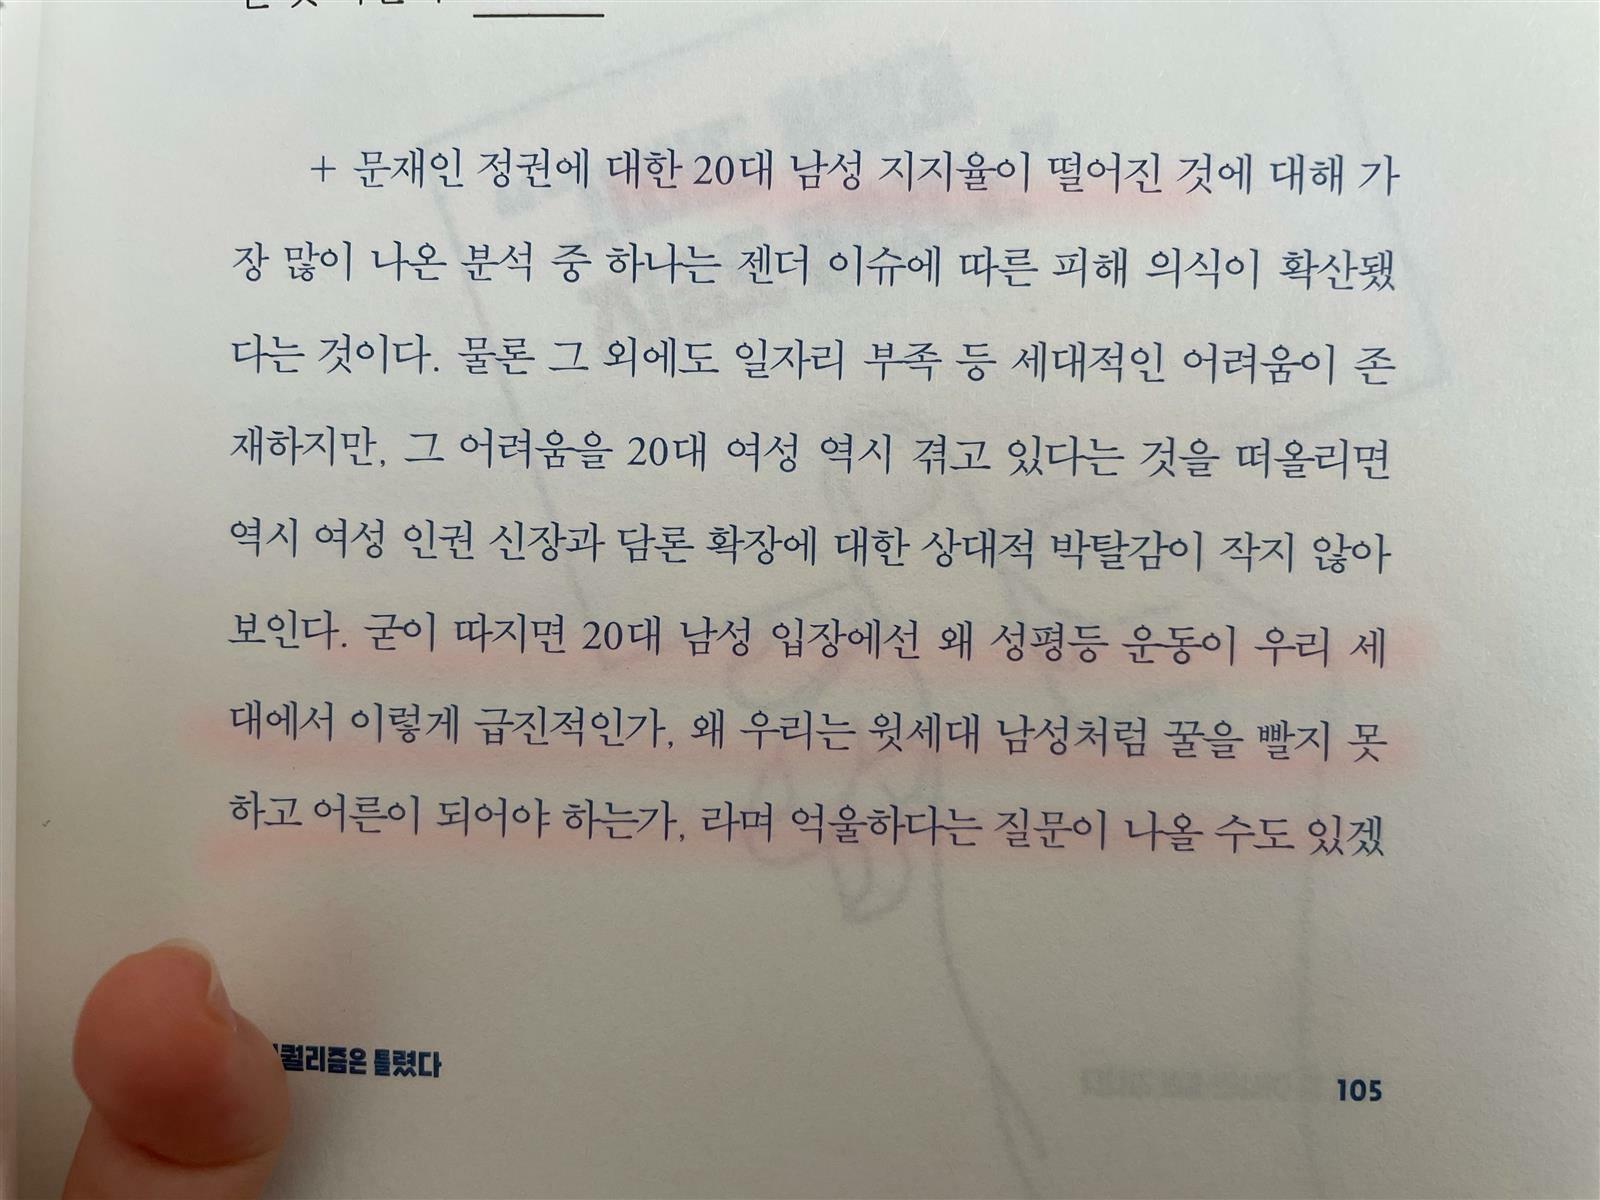 + 문재인 정권에 대한 20대 남성 지지율이 떨어진 것에 대해 가
장 많이 나온 분석 중 하나는 젠더 이슈에 따른 피해 의식이 확산됐
다는 것이다. 물론 그 외에도 일자리 부족 등 세대적인 어려움이 존
재하지만, 그 어려움을 20대 여성 역시 겪고 있다는 것을 떠올리면
역시 여성 인권 신장과 담론 확장에 대한 상대적 박탈감이 작지 않아
보인다. 굳이 따지면 20대 남성 입장에선 왜 성평등 운동이 우리 세
대에서 이렇게 급진적인가, 왜 우리는 윗세대 남성처럼 꿀을 빨지 못
하고 어른이 되어야 하는가, 라며 억울하다는 질문이 나올 수도 있겠
퀄리즘은 틀렸다
105